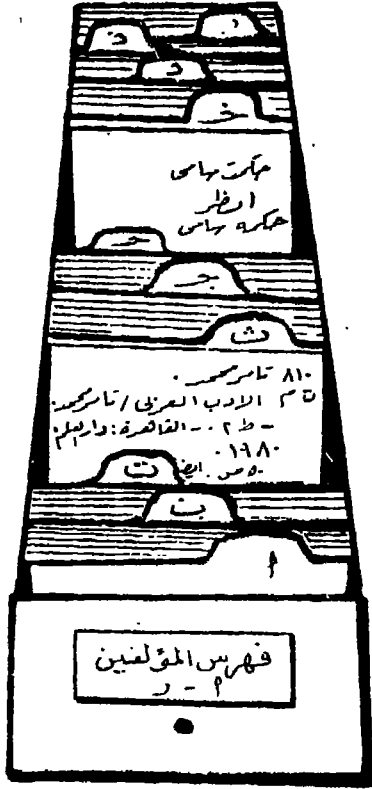 ذ
د
خ
حكمت
انظر
حكمه
ح
ج
ث
٨١٠ تامر محمد .
ت ا م الادب العربى / تامر محمد .
ـ ط ٢ . ـ القاهرة : دار العلم
١٩٨٠ .
ص . ايض
ت
ب
أ
فهرس المؤلفين
أ - ر